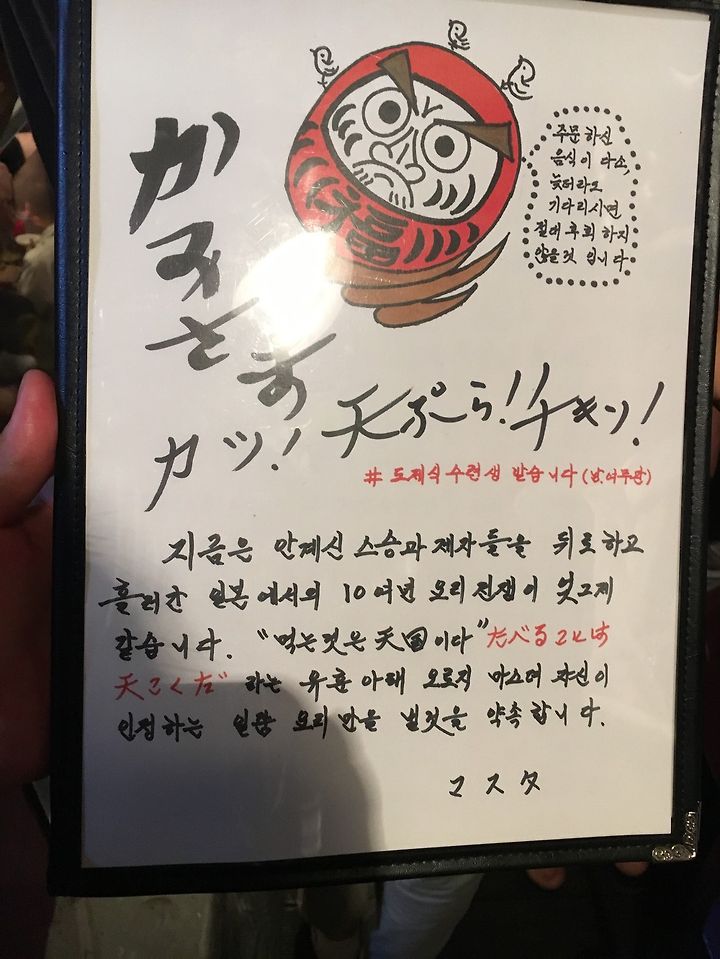 福
주문하신
음식이 다소,
늦더라도
기다리시면
절대 후회 하지
않을것 입니다
カツ!
天ぷーら!!チキン!
# 도제식 수련생 받습니다 (남여무관)
지금은 안계신 스승과 제자들을 뒤로하고
흘러간 일본에서의 10여년 요리전쟁이 엊그제
같습니다. “먹는것은 天国이다” たべることは
天こくだ” 라는 유훈아래 오로지 마스터 자신이
인정하는 일품 요리만을 낼것을 약속합니다.
マスタ